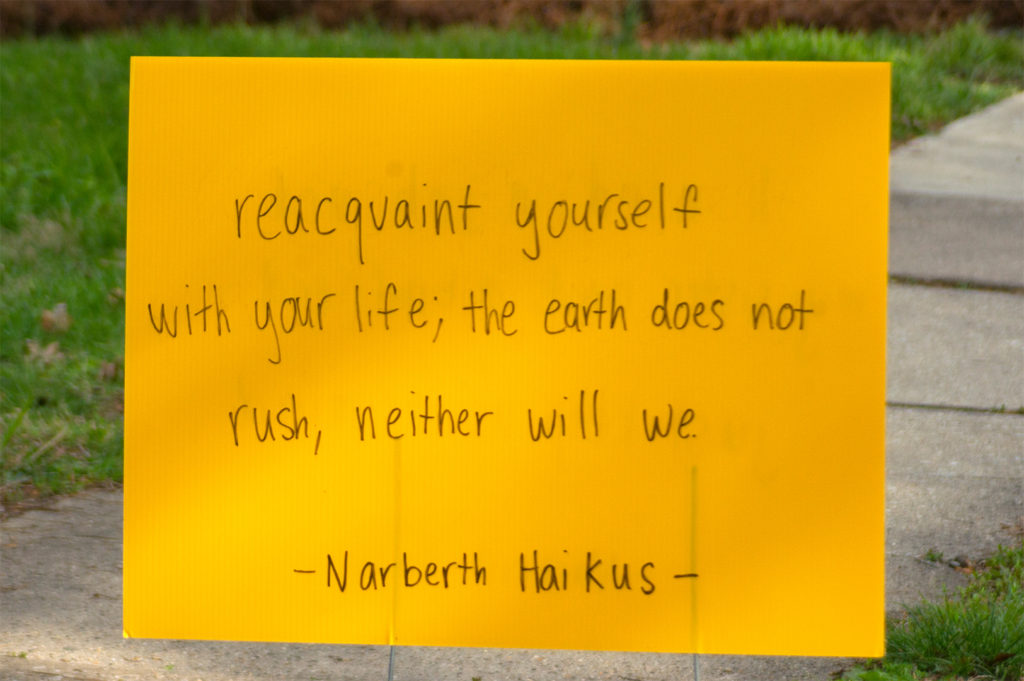 reacquaint yourself
with your life; the earth does not
rush, neither will we.
- Narberth Haikus -